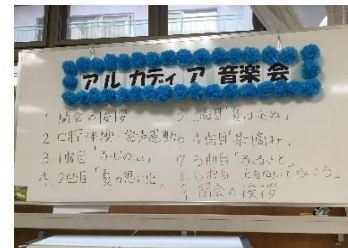 アルカディア 音楽会
1. 開会の挨拶
2. 口腔体操・発声運動
3. 1曲目「ふじの山」
4. 2曲目「夏の思い出」
5. 3曲目「夏は来ぬ」
6. 4曲目「
7. 5曲目「ふるさと」
8. 6曲目「上を向いて歩こう」
9. 閉会の挨拶